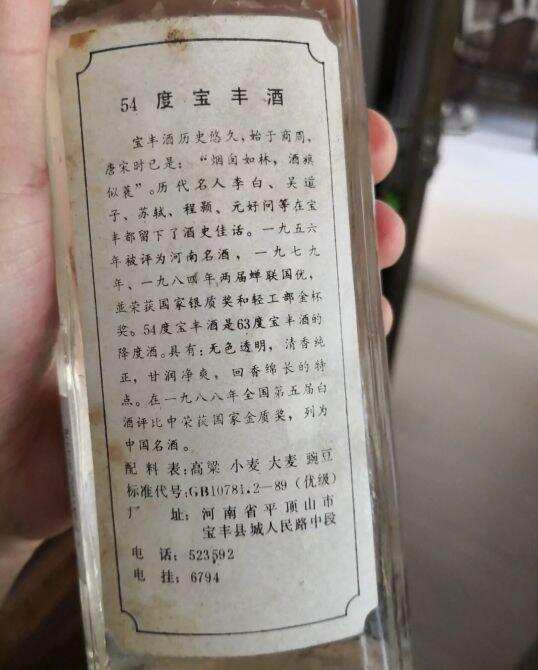 54 度宝丰酒
宝丰酒历史悠久,始于商周,
唐宋时已是:“烟囱如林,酒旗
似蓑”。历代名人李白、吴道
子、苏轼、程颢、元好问等在宝
丰都留下了酒史佳话。一九五六
年被评为河南名酒,一九七九
年、一九八四年两届蝉联国优,
並荣获国家银质奖和轻工部金杯
奖。54度宝丰酒是63度宝丰酒的
降度酒。具有:无色透明,清香纯
正,甘润净爽,回香绵长的特
点。在一九八八年全国第五届白
酒评比中荣获国家金质奖,列为
中国名酒。
配料表:高粱 小麦 大麦 豌豆
标准代号:GB10781.2—89(优级)
厂址:河南省平顶山市
宝丰县城人民路中段
电话:523592
电挂:6794